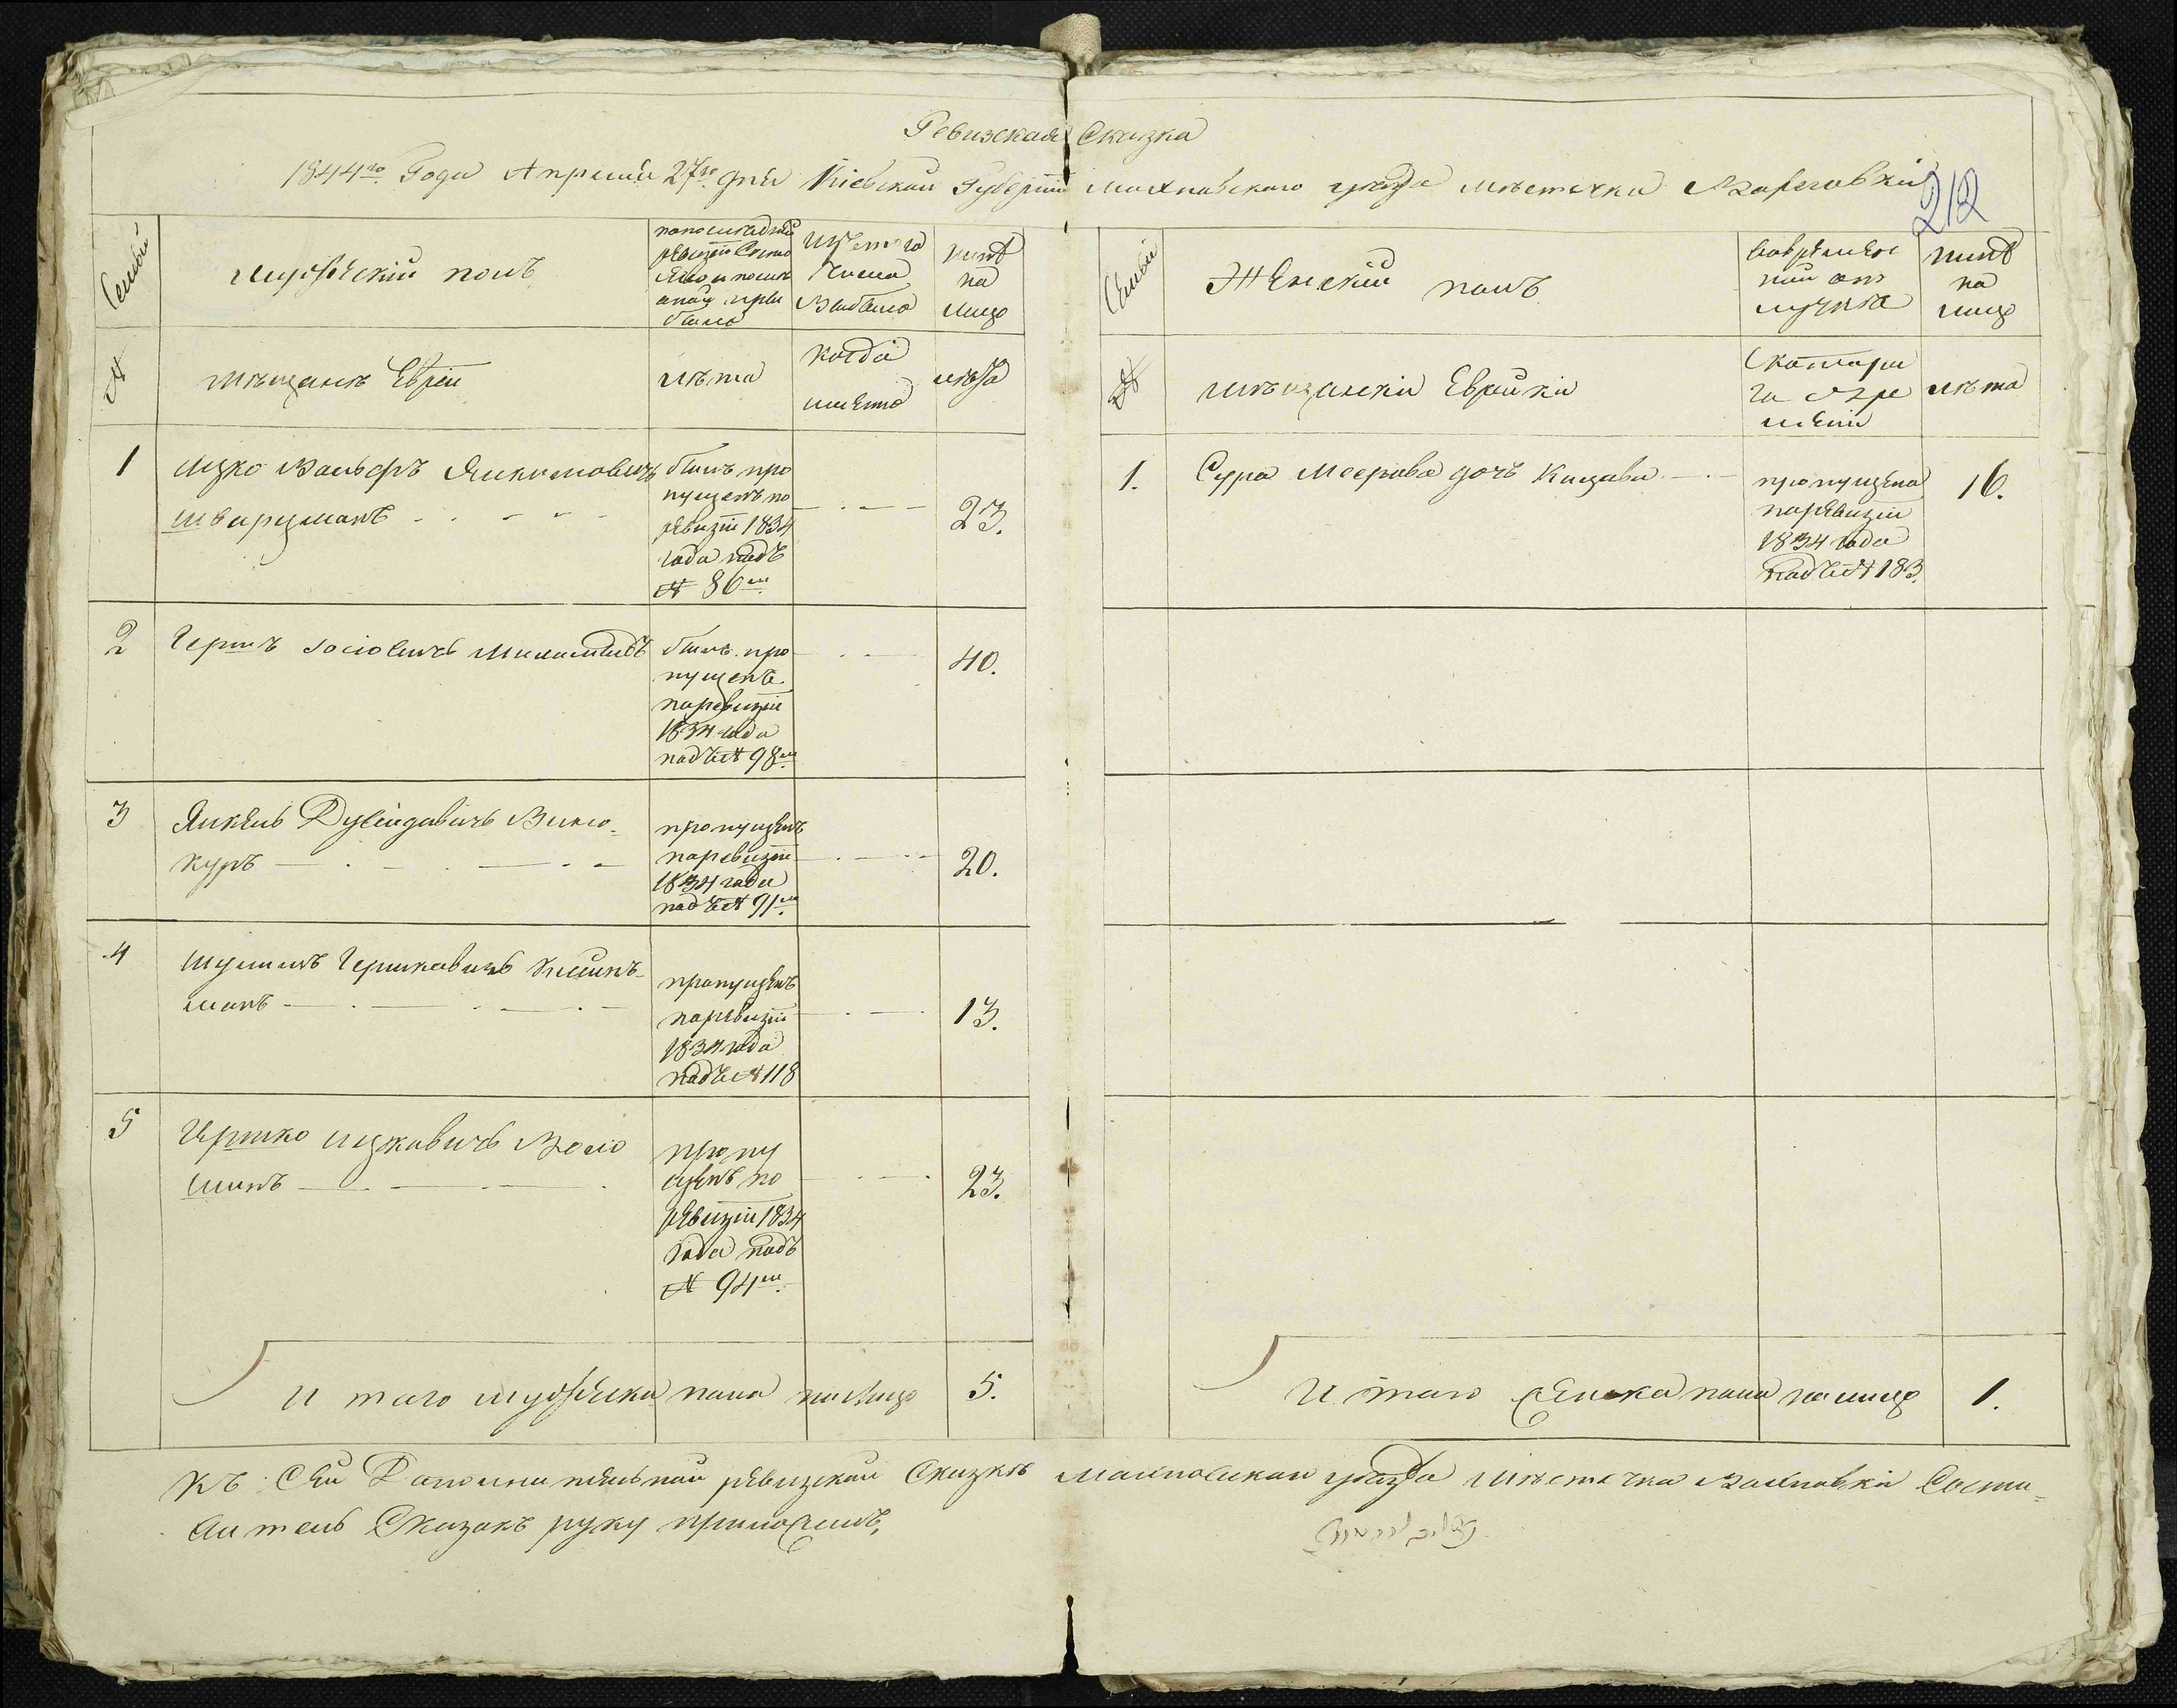 Ревизская Сказка
1844го Года Апреля 27го дня Кіевской Губерніи Махновского уезда мѣстечка
212
Семьи
Мужескій полъ
По последней ревизіи состояло и после оной прибыло
Изъ того числа Выбыло
Нинѣ на лицо
Семьи
Женскій полъ
Во временной отлучкѣ
Нинѣ на лицо
№
Мѣщанъ Евреи
Лѣта
Когда именно
Лѣта
№
Мѣщански Еврейки
С которого времени
Лѣта
1
Ицко Вольфъ Янкелевичъ
Шварцманъ
былъ про
пущенъ по
ревизіи 1834
года подъ
№ 86м
23.
1.
Сура Меерова дочь
пропущена
по ревизіи
1834 года
подъ № 183.
16.
2
Гершъ Іосіовичъ
былъ про
пущенъ
по ревизіи
1834 года
подъ № 98м
40.
3
Янкель Дувидовичъ Вино-
куръ
пропущенъ
по ревизіи
1834 года
подъ № 91м
20.
4
Шулимъ Гершковичъ Клейнъ-
манъ
пропущенъ
по ревизіи
1834 года
подъ № 118
13.
5
Гершко Ицковичъ Воло
шинъ
пропу
щенъ по
ревизіи 1834
года подъ
№ 94м
23.
И того мужеска пола на лицо 5.
И того женска пола на лицо 1.
Къ Сей Дополнительной ревизской Сказкѣ Махновскаго уезда мѣстечка Вахновки Соста-
витель Сказокъ руку приложилъ,